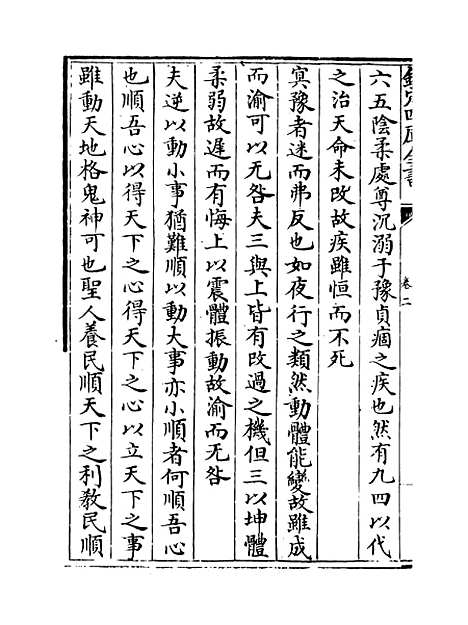 欽定四庫全書
卷二
六五陰柔處尊沉溺于豫貞痼之疾也然有九四以代
之治天命未改故疾雖恒而不死
㝠豫者迷而弗反也如夜行之類然動體能變故雖成
而渝可以无咎夫三與上皆有改過之機但三以坤體
柔弱故遲而有悔上以震體振動故渝而无咎
夫逆以動小事猶難順以動大事亦小順者何順吾心
也順吾心以得天下之心得天下之心以立天下之事
雖動天地格鬼神可也聖人養民順天下之利教民順